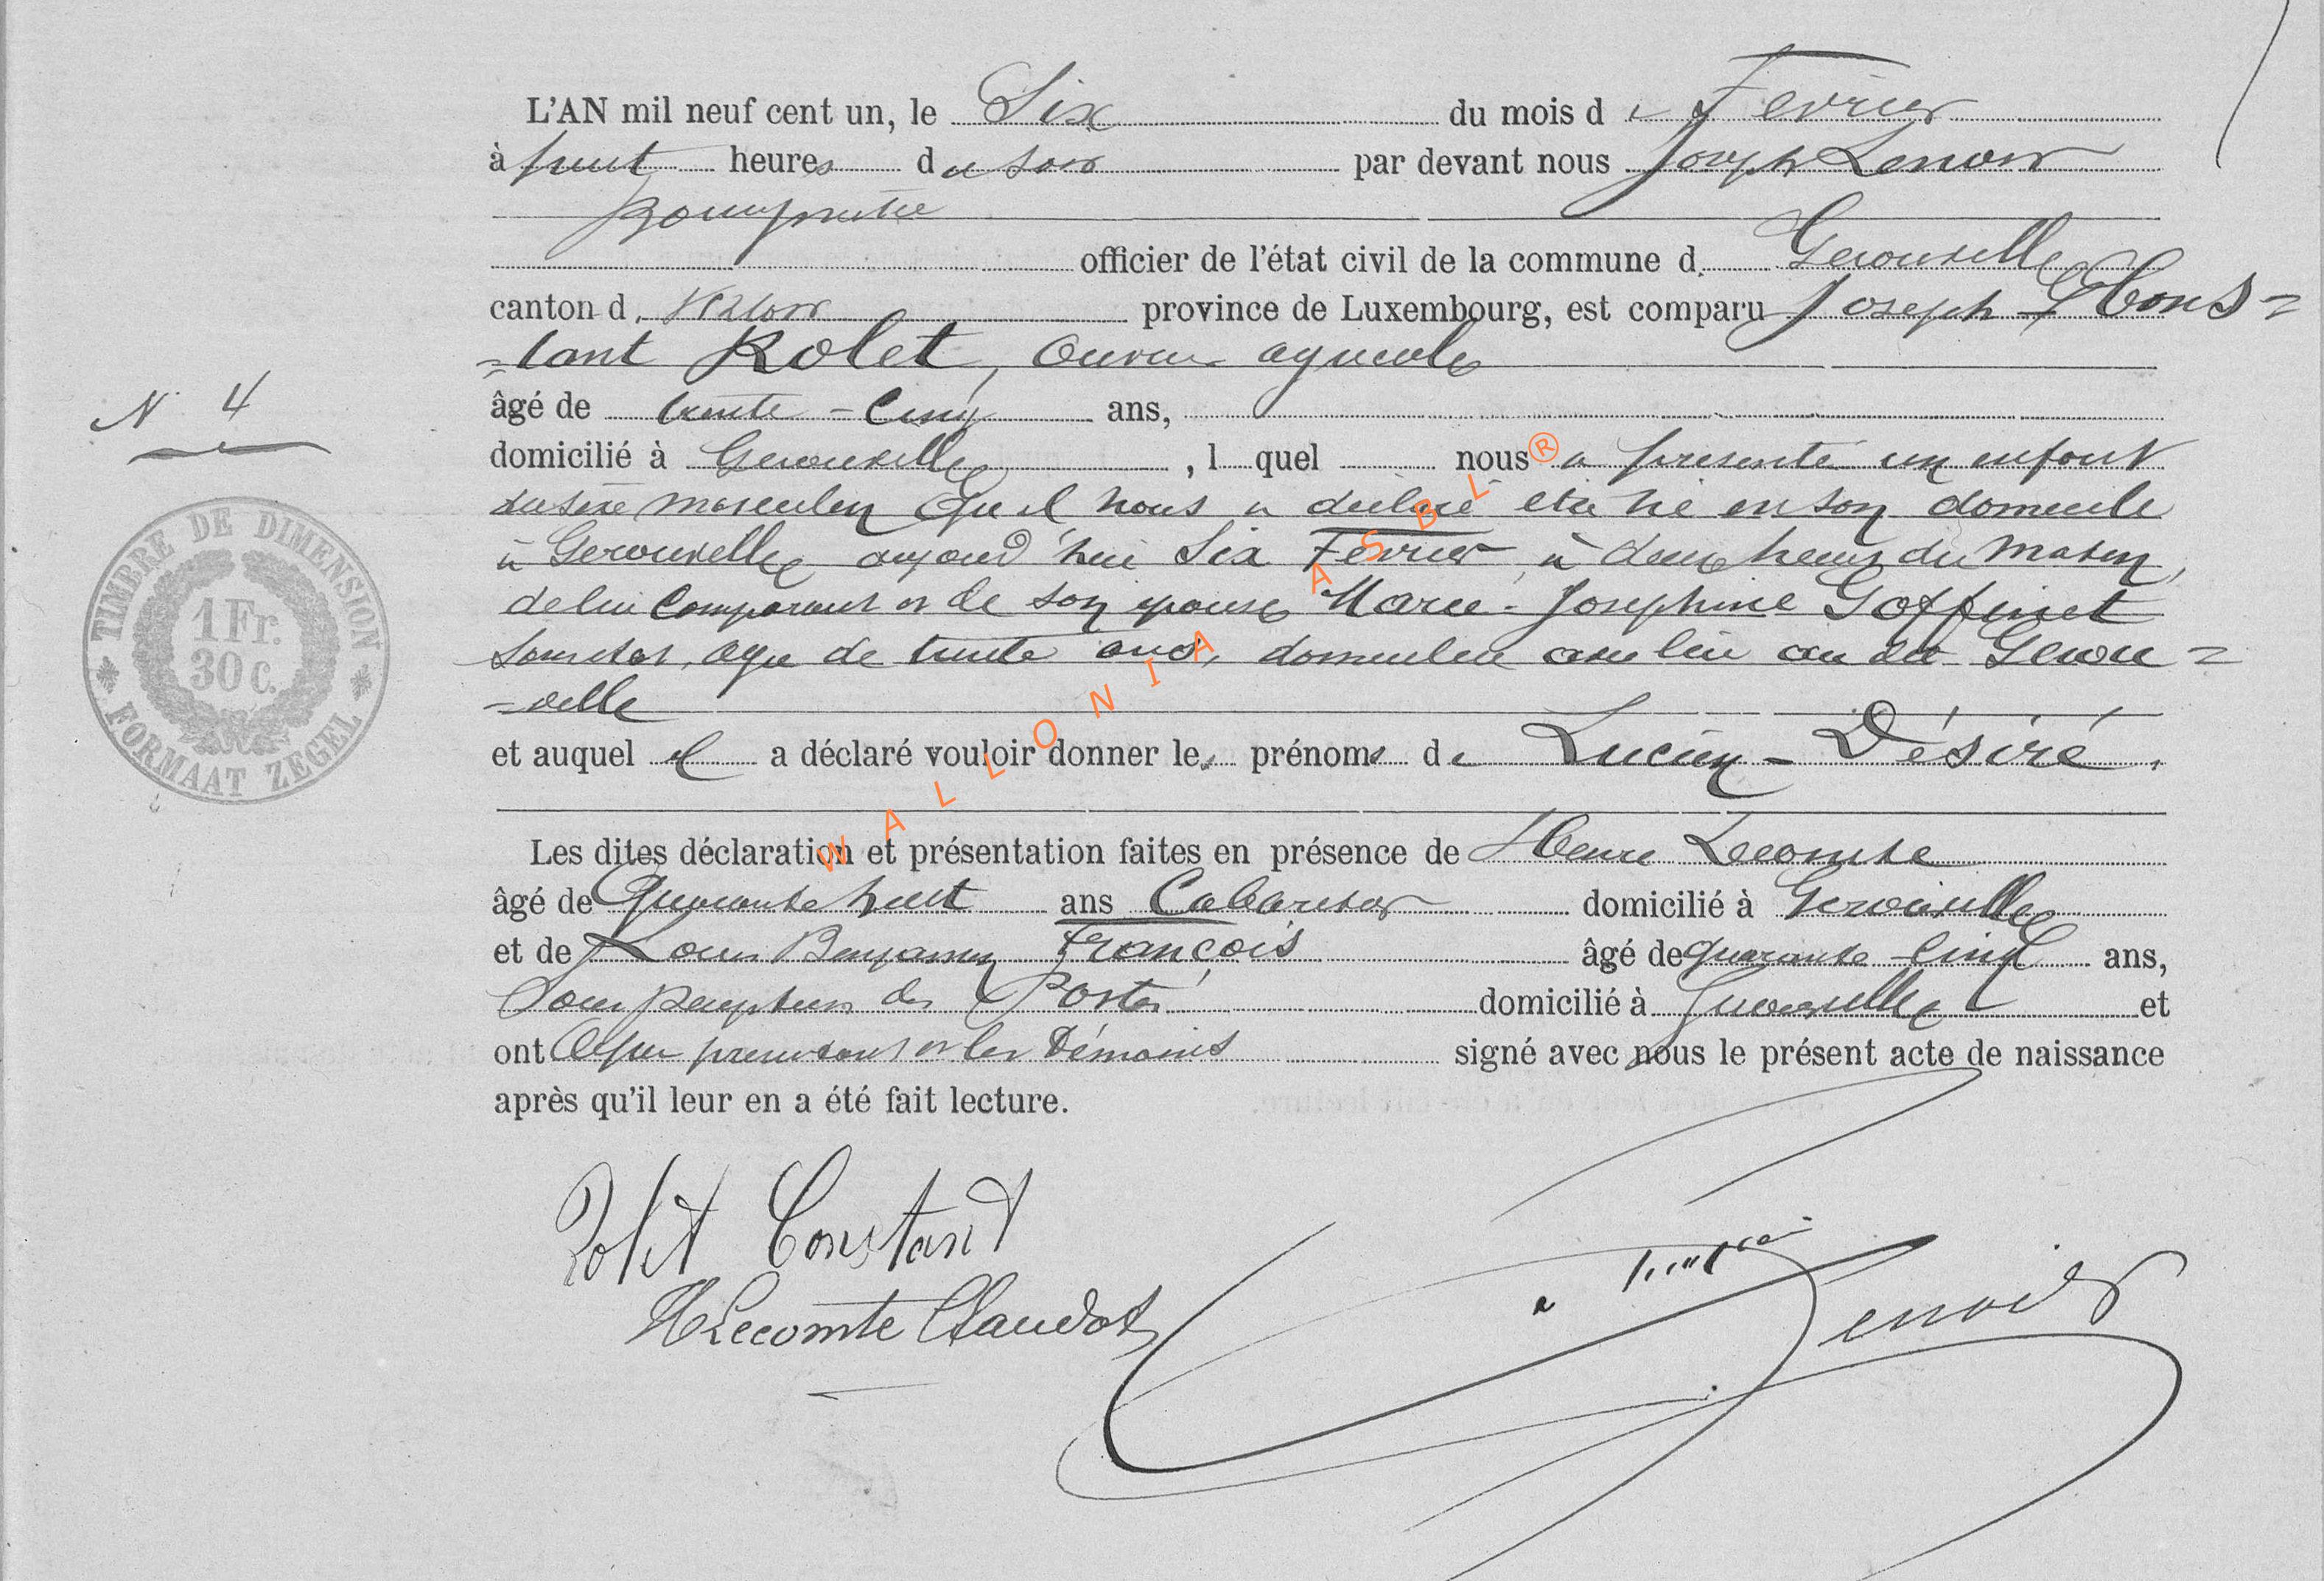 L'AN mil neuf cent un, le Six du mois de Fevrier
à huit heures du soir par devant nous Joseph Lenoir
Bourgmestre
officier de l'état civil de la commune d Gerouville
canton d Virton province de Luxembourg, est comparu Joseph Cons=
=tant Rolet, ouvrier agricole
N 4
âgé de trente-cinq ans,
domicilié à Gerouville, l quel nous a présenté un enfant
du sexe masculin qu'il nous a déclaré etre né en son domicile
à Gerouville aujourd'hui Six Fevrier, à deux heures du matin,
de lui comparant et de son epouse Marie-Josephine Goffinet
agée de trente ans, domiciliée avec lui au dit Gerou=
=ville
et auquel il a déclaré vouloir donner les prénoms de Lucien-Désiré.
Les dites déclaration et présentation faites en présence de Henri Lecomte
âgé de Quarante huit ans Cabaretier domicilié à Gerouville
et de Louis Benjamin François âgé de quarante cinq ans,
Sous percepteur des Postes domicilié à Gerouville et
ont et les témoins signé avec nous le présent acte de naissance
après qu'il leur en a été fait lecture.
Rolet Constant
HLecomte Claudot
Lenoir
TIMBRE DE DIMENSION
1 Fr.
30 c.
FORMAAT ZEGEL
WALLONIA ASBL ®